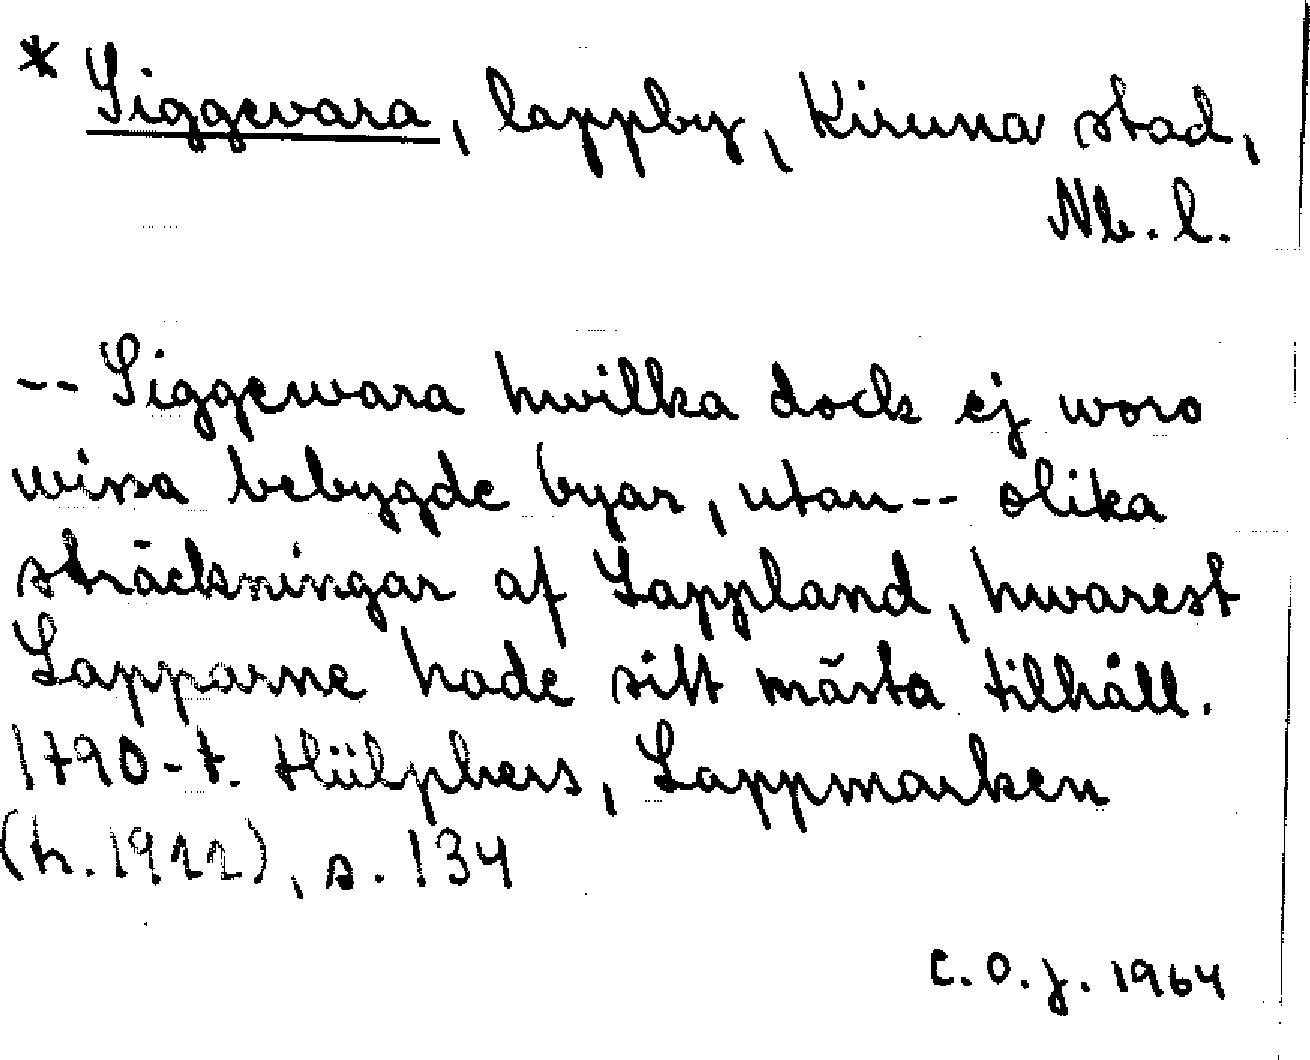 * Siggevara, lappby, Kiruna stad,
Nb. l.
-- Siggewara hwilka dock ej woro
wissa bebygde byar, utan -- olika
sträckningar af Lappland, hwarest
Lapparne hade sitt mästa tilhåll.
1790-t. Hülphers, Lappmarken
(h. 1922), s. 134
C.O.J. 1964